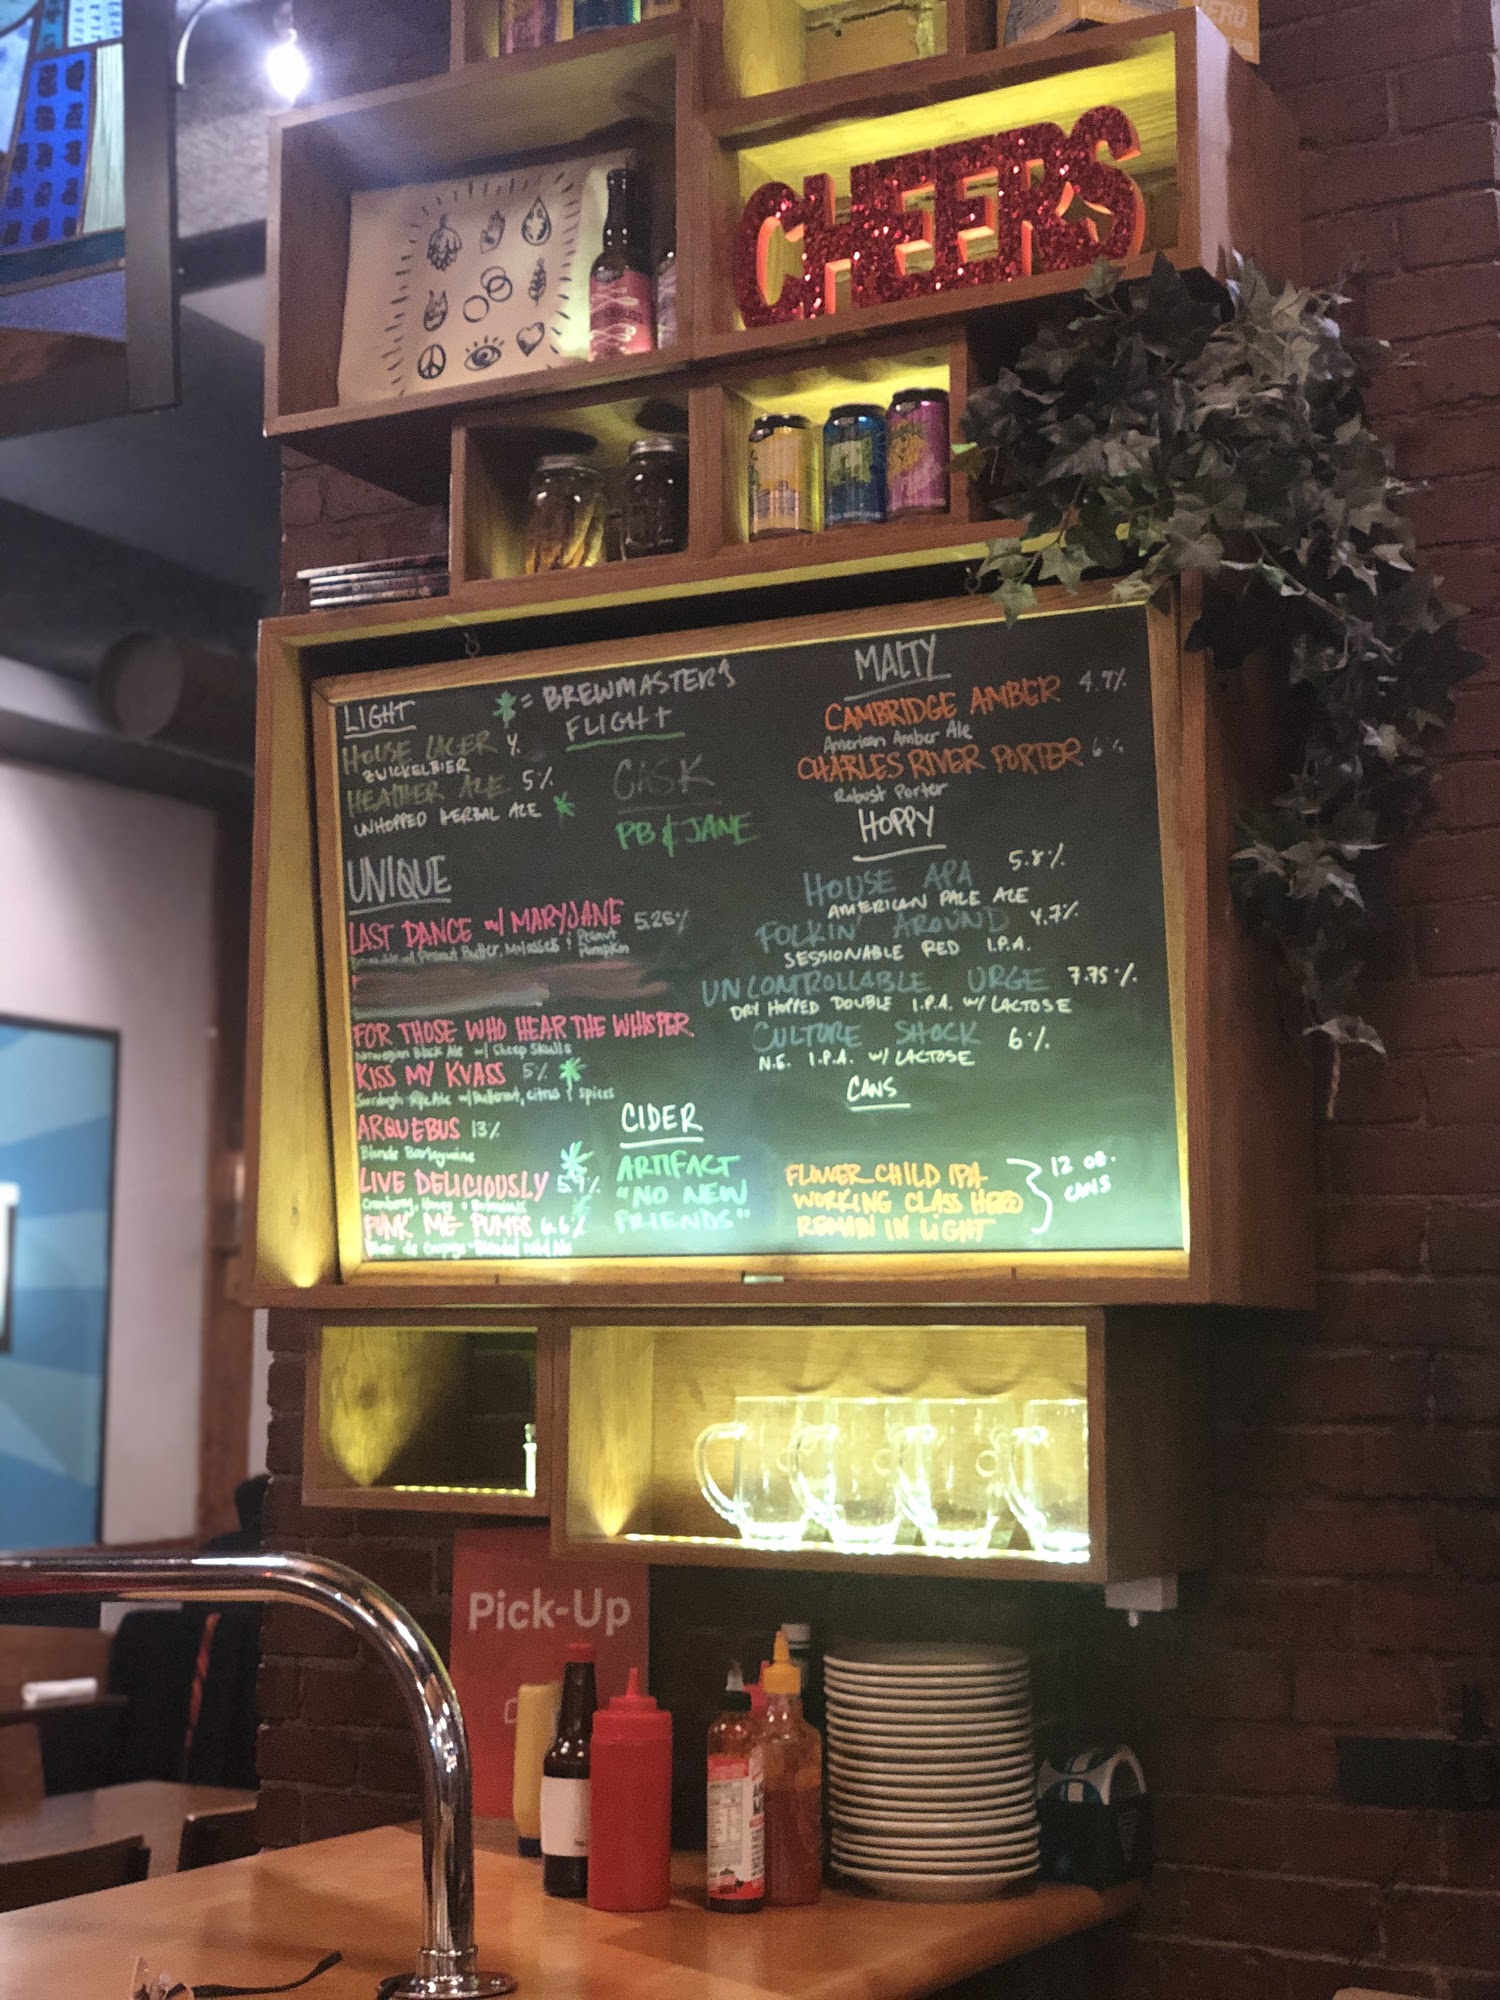 CHEERS
LIGHT
HOUSE LAGER
ZWICKELBIER
HEATHER ALE 5%
UNHOPPED HERBAL ALE
= BREWMASTER'S
FLIGHT
CASK
PB & JANE
UNIQUE
LAST DANCE w/ MARYJANE 5.25%
w/ Peanut Butter, Molasses & Peanut
Pumpkin
FOR THOSE WHO HEAR THE WHISPER
Norwegian Black Ale w/ Sheep Skulls
KISS MY KVASS 5%
Sourdough Rye Ale w/ citrus & spices
ARQUEBUS 13%
Blonde Barleywine
LIVE DELICIOUSLY 5.9%
Cranberry, Honey
FUNK ME PUMPS 6.6%
CIDER
ARTIFACT
"NO NEW
FRIENDS"
MALTY
CAMBRIDGE AMBER 4.7%
American Amber Ale
CHARLES RIVER PORTER 6%
Robust Porter
HOPPY
HOUSE APA 5.8%
AMERICAN PALE ALE
FOLKIN' AROUND 4.7%
SESSIONABLE RED I.P.A.
UNCONTROLLABLE URGE 7.75%
DRY HOPPED DOUBLE I.P.A. w/ LACTOSE
CULTURE SHOCK 6%
N.E. I.P.A. w/ LACTOSE
CANS
FLOWER CHILD IPA
WORKING CLASS HERO
REMAIN IN LIGHT
12 oz.
CANS
Pick-Up